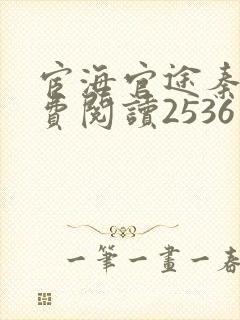 宦海官途秦
費閱讀2536
一筆一畫一春